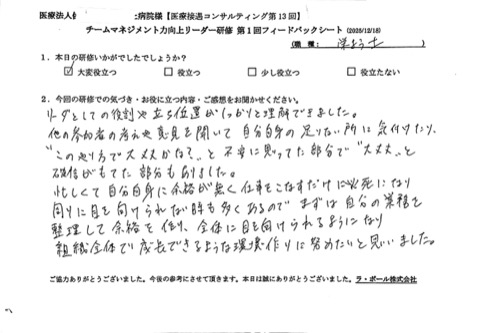 医療法人 病院様【医療接遇コンサルティング第13回】
チームマネジメント力向上リーダー研修 第1回フィードバックシート (2025/12/18)
(職 種: 栄養士 )
1. 本日の研修いかがでしたでしょうか?
☑ 大変役立つ □ 役立つ □ 少し役立つ □ 役立たない
2. 今回の研修での気づき・お役に立つ内容・ご感想をお聞かせください。
リーダとしての役割や立ち位置がしっかりと理解できました。
他の参加者の考えや意見を聞いて自分自身の足りない所に気付けたり、
"このやり方で大丈夫かな?"と不安に思ってた部分で"大丈夫"と
確信がもてた部分もありました。
忙しくて自分自身に余裕が無く仕事をこなすだけに必死になり
周りに目を向けられない時も多くあるのでまずは自分の業務を
整理して余裕を作り、全体に目を向けられるようになり
組織全体で成長できるような環境作りに努めたいと思いました。
ご協力ありがとうございました。今後の参考にさせて頂きます。本日は誠にありがとうございました。 ラ・ポール株式会社